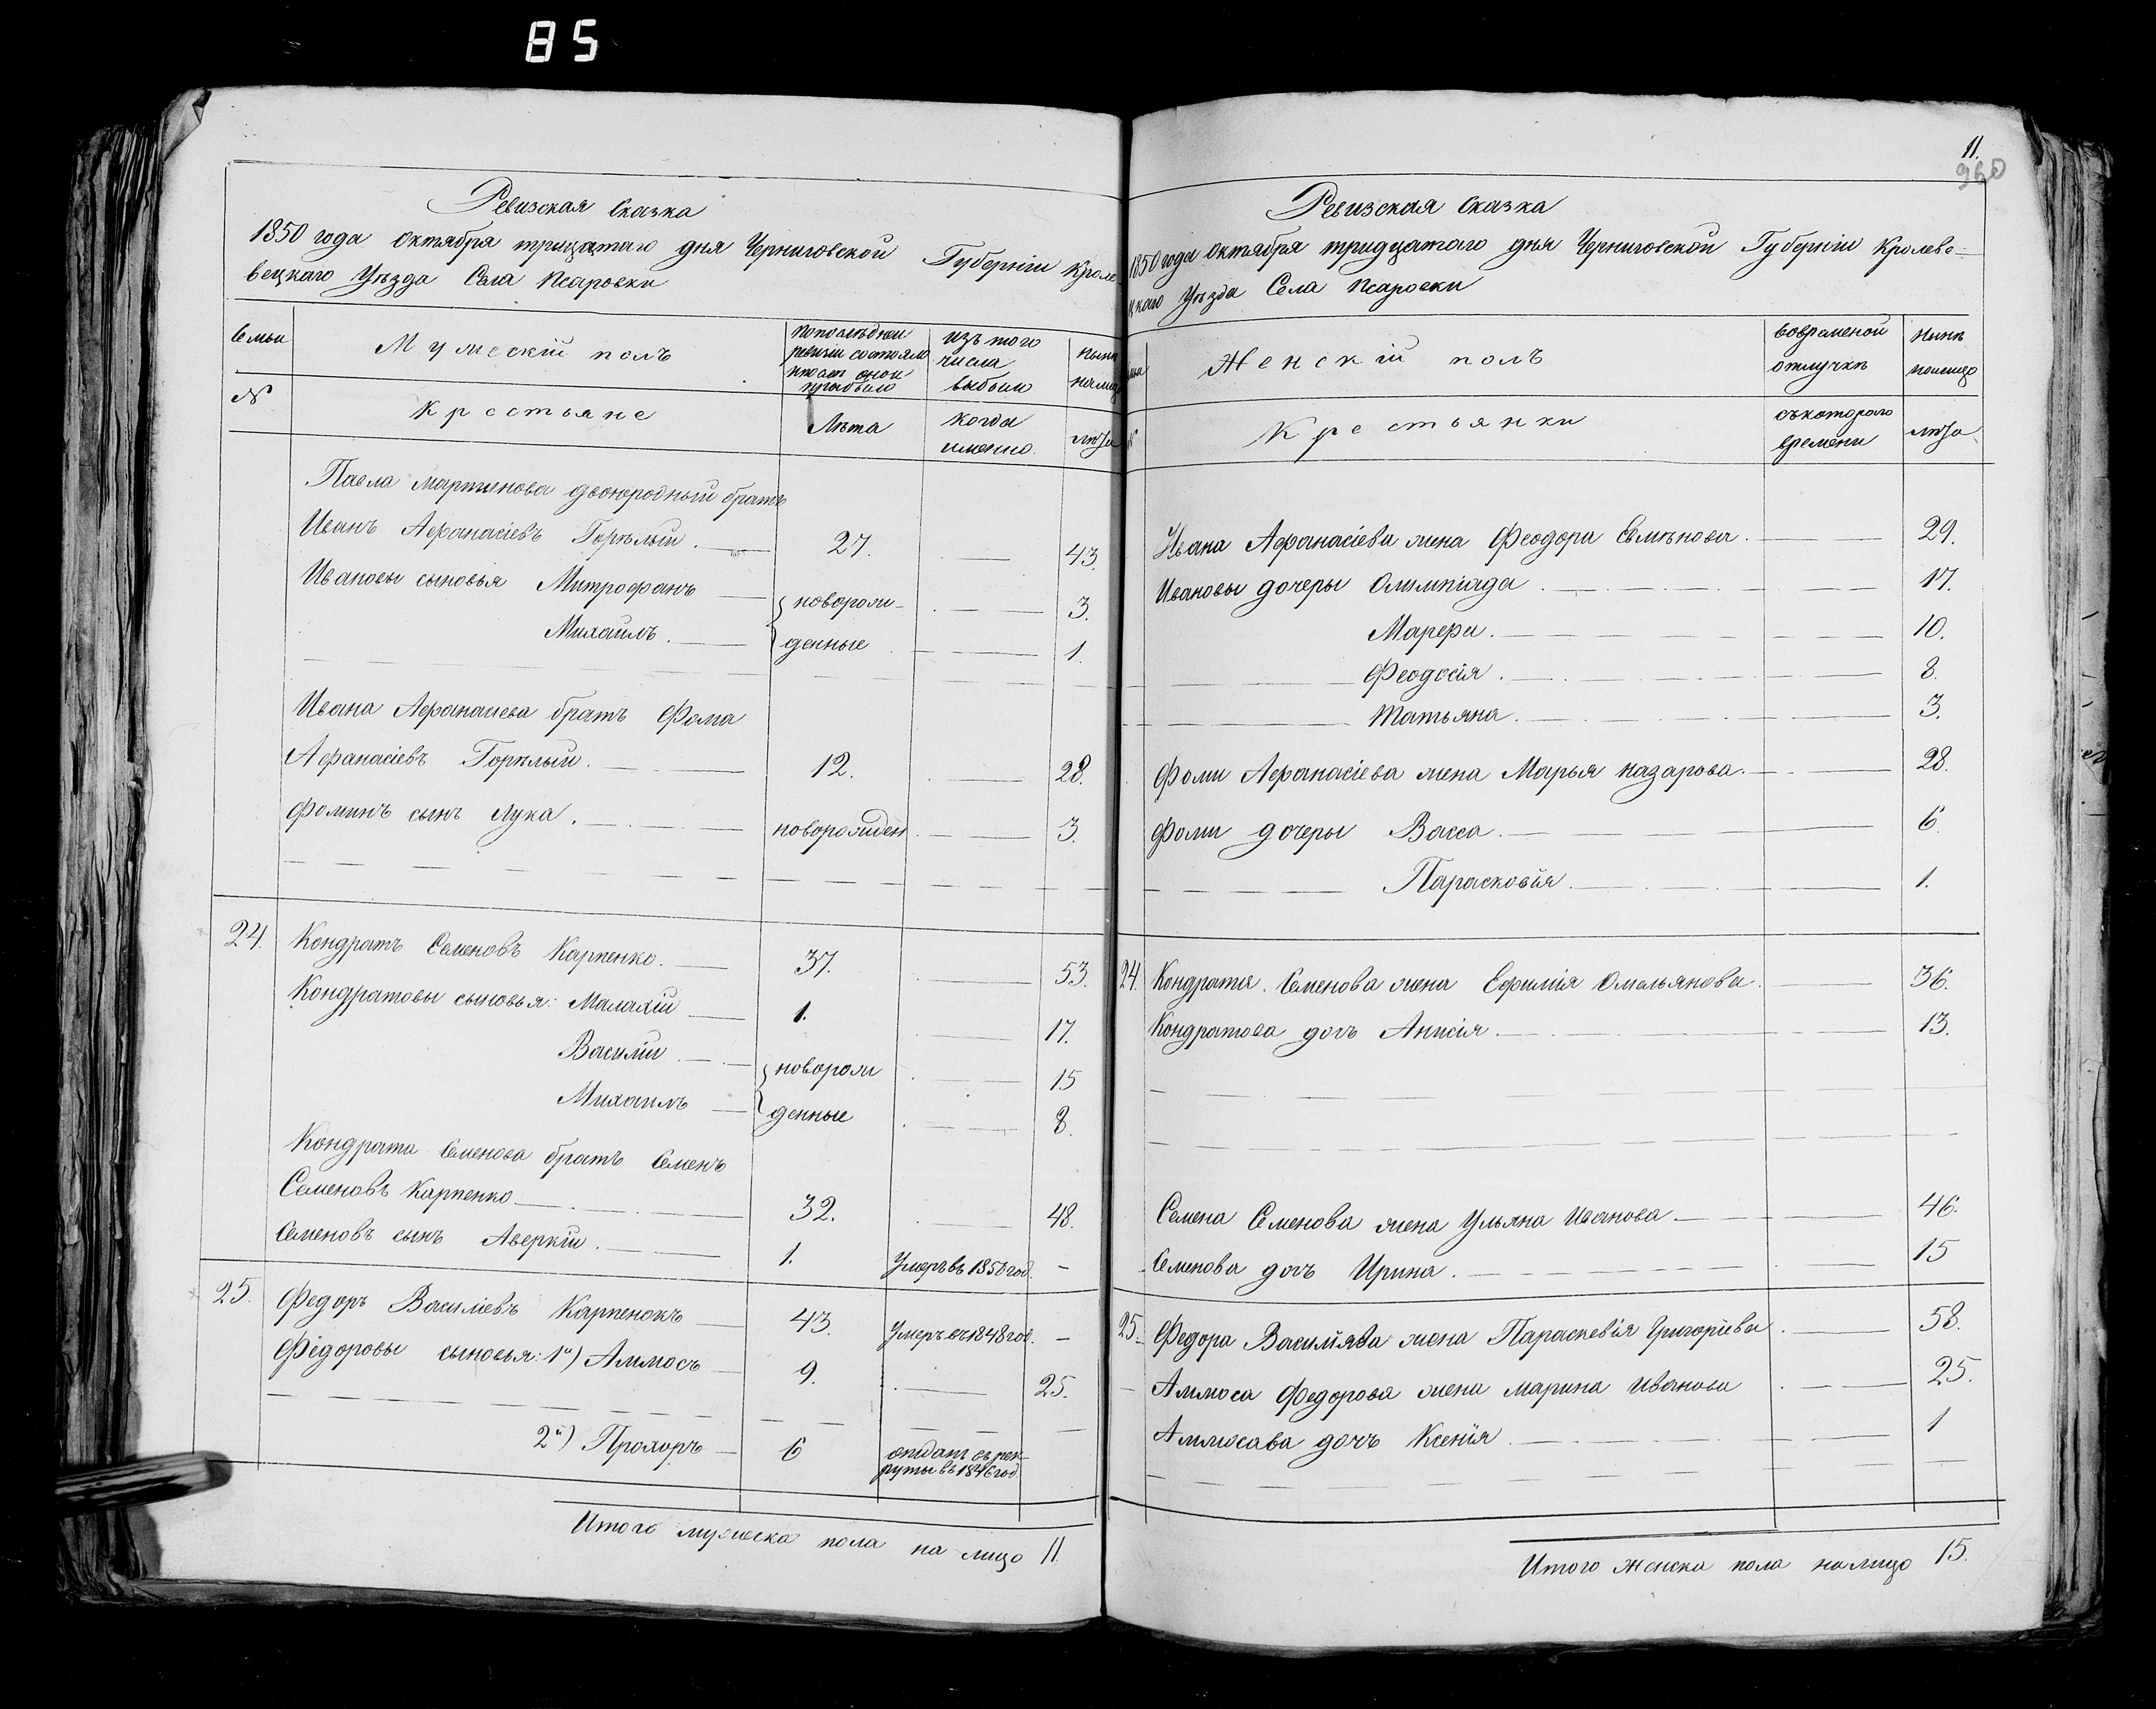 85
Ревизская Сказка
1850 года Октября трицатаго дня Черниговской Губернiи Кроле
вецкаго Уѣзда Села Псаровки
Семьи
Мужескiй полъ
изъ того
числа
выбыло
№
Крестьяне
Лѣта
когда
именно
лѣта
Павла Мартинова двоюродный братъ
Иванъ Афанасiевъ Горѣлый. 27. 43.
Ивановы сыновья Митрофанъ новорож- 3.
Михаилъ. денные 1.
Ивана Афанасиева братъ Фома
Афанасiевъ Горѣлый. 12. 28.
Фоминъ сынъ Лука. новорожден 3.
24. Кондратъ Семеновъ Карпенко. 37. 53.
Кондратовы сыновья: Малахiй 1. 17.
Василiй новорож 15
Михаилъ денные 8.
Кондрата Семенова братъ Семенъ
Семеновъ Карпенко 32. 48.
Семеновъ сынъ Аверкiй. 1. Умеръ въ 1850 год. -
25. Федоръ Василiевъ Карпенокъ 43. Умеръ въ 1848 год. -
Федоровы сыновья: 1й) Аммосъ 9. 25.
2й) Прохоръ 6 отдат въ рек-
руты въ 1846 год.
Итого мужеска пола на лицо 11.
11.
960
Ревизская Сказка
1850 года Октября тридцатаго дня Черниговской Губернiи Кролеве-
цкаго Уѣзда Села Псаровки
Женскiй полъ
вовременой
отлучкѣ
Нынѣ
налицо
№
Крестьянки
съ котораго
времени
лѣта
Ивана Афанасiева жена Феодора Семѣнова. 29.
Ивановы дочеры Олимпiада 17.
Марефа. 10.
Феодосiя. 8.
Татьяна. 3.
Фоми Афанасiева жена Марья Назарова. 28.
Фоми дочеры Васса. 6.
Парасковiя. 1.
24. Кондратя Семенова жена Ефимiя Омельянова. 36.
Кондратова дочъ Анисiя. 13.
Семена Семенова жена Ульяна Иванова 46.
Семенова дочъ Ирина. 15
25. Федора Василiява жена Параскевiя Григорiева 58.
Аммоса Федорова жена Марина Иванова 25.
Аммосава дочъ Ксенiя 1
Итого женска пола налицо 15.